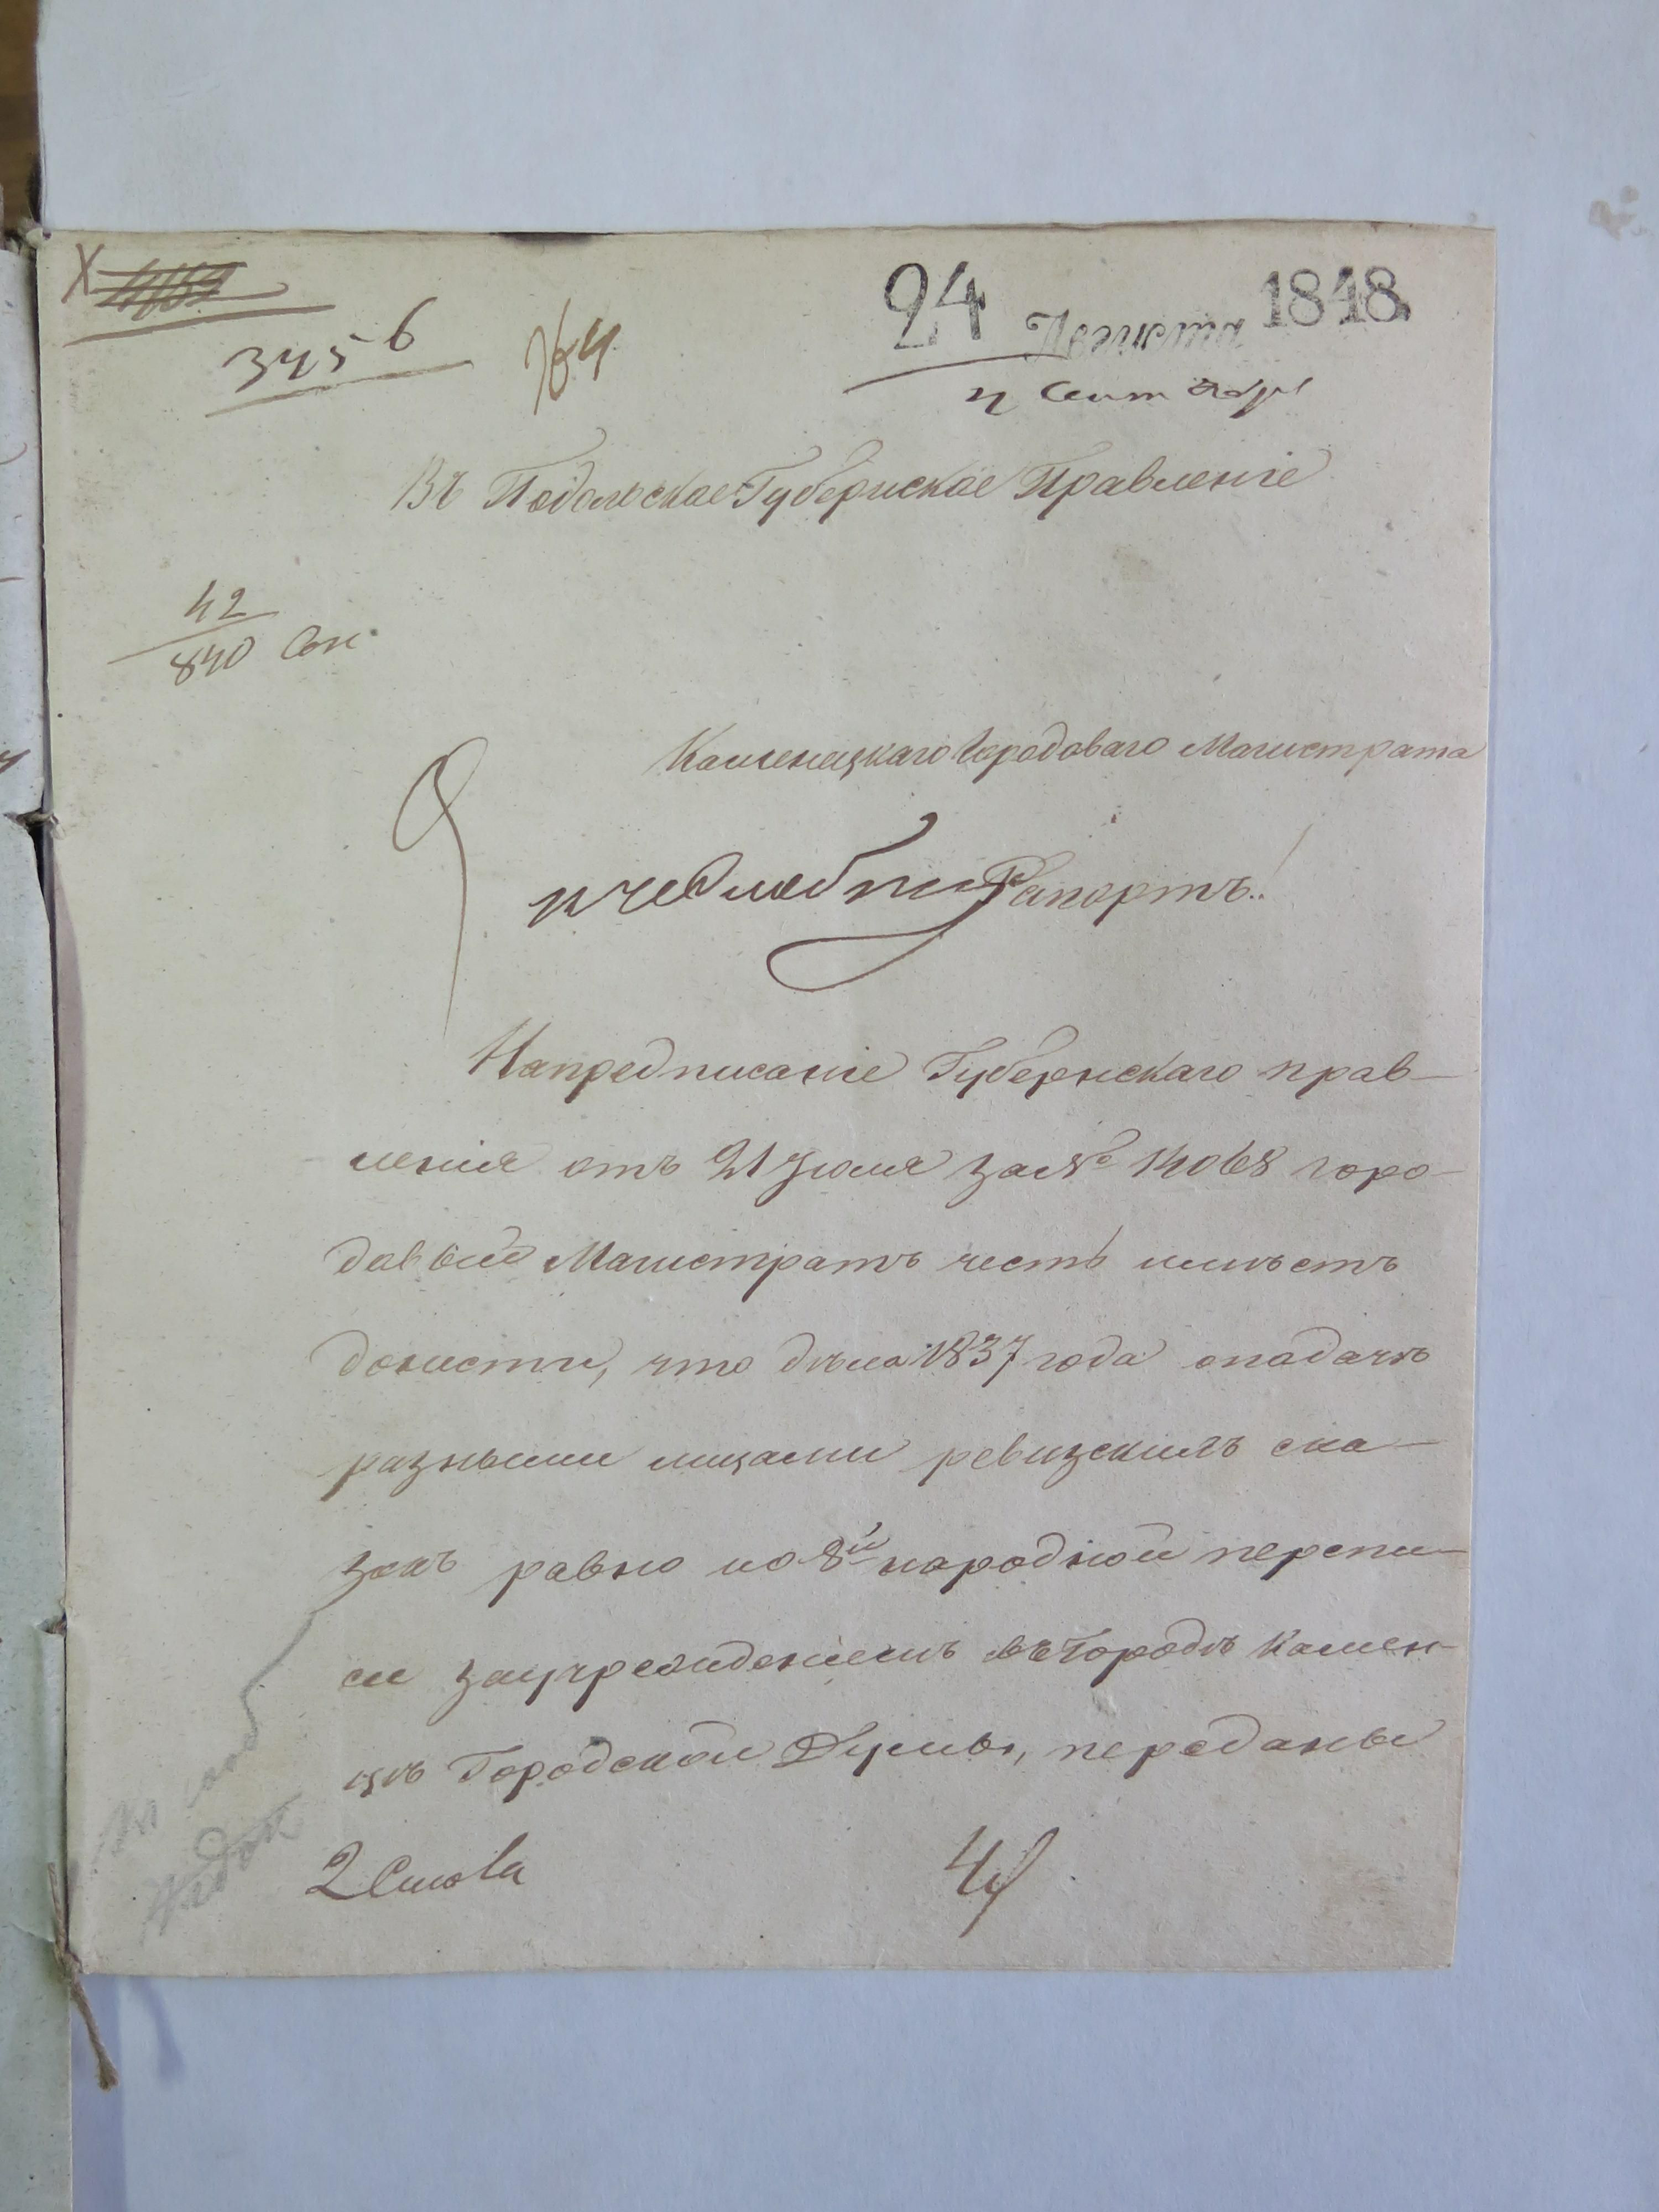 3456
24 Августа 1848
4 Сентября
Въ Подольское Губернское Правленіе
42
840
Каменецкаго Городоваго Магистрата
Рапортъ.
Напредписаніе Губернскаго прав-
ленія отъ 21 Іюля за № 14068 горо-
довый Магистратъ честь имѣетъ
донести, что дѣла 1837 года оподачѣ
разными лицами ревизскихъ ска-
зокъ равно по 8й народной перепи-
си заучрежденіемъ въ Городѣ Камен-
цѣ Городской Думы, переданы
2 Стола